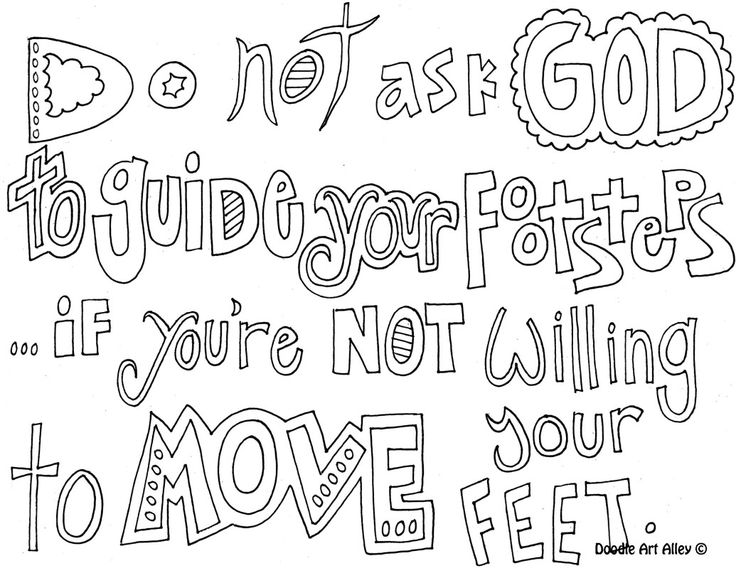 Do not ask GOD
to guiDe your Footsteps
...iF you're NOT Willing
to MOVE your
FEET.
Doodle Art Alley ©